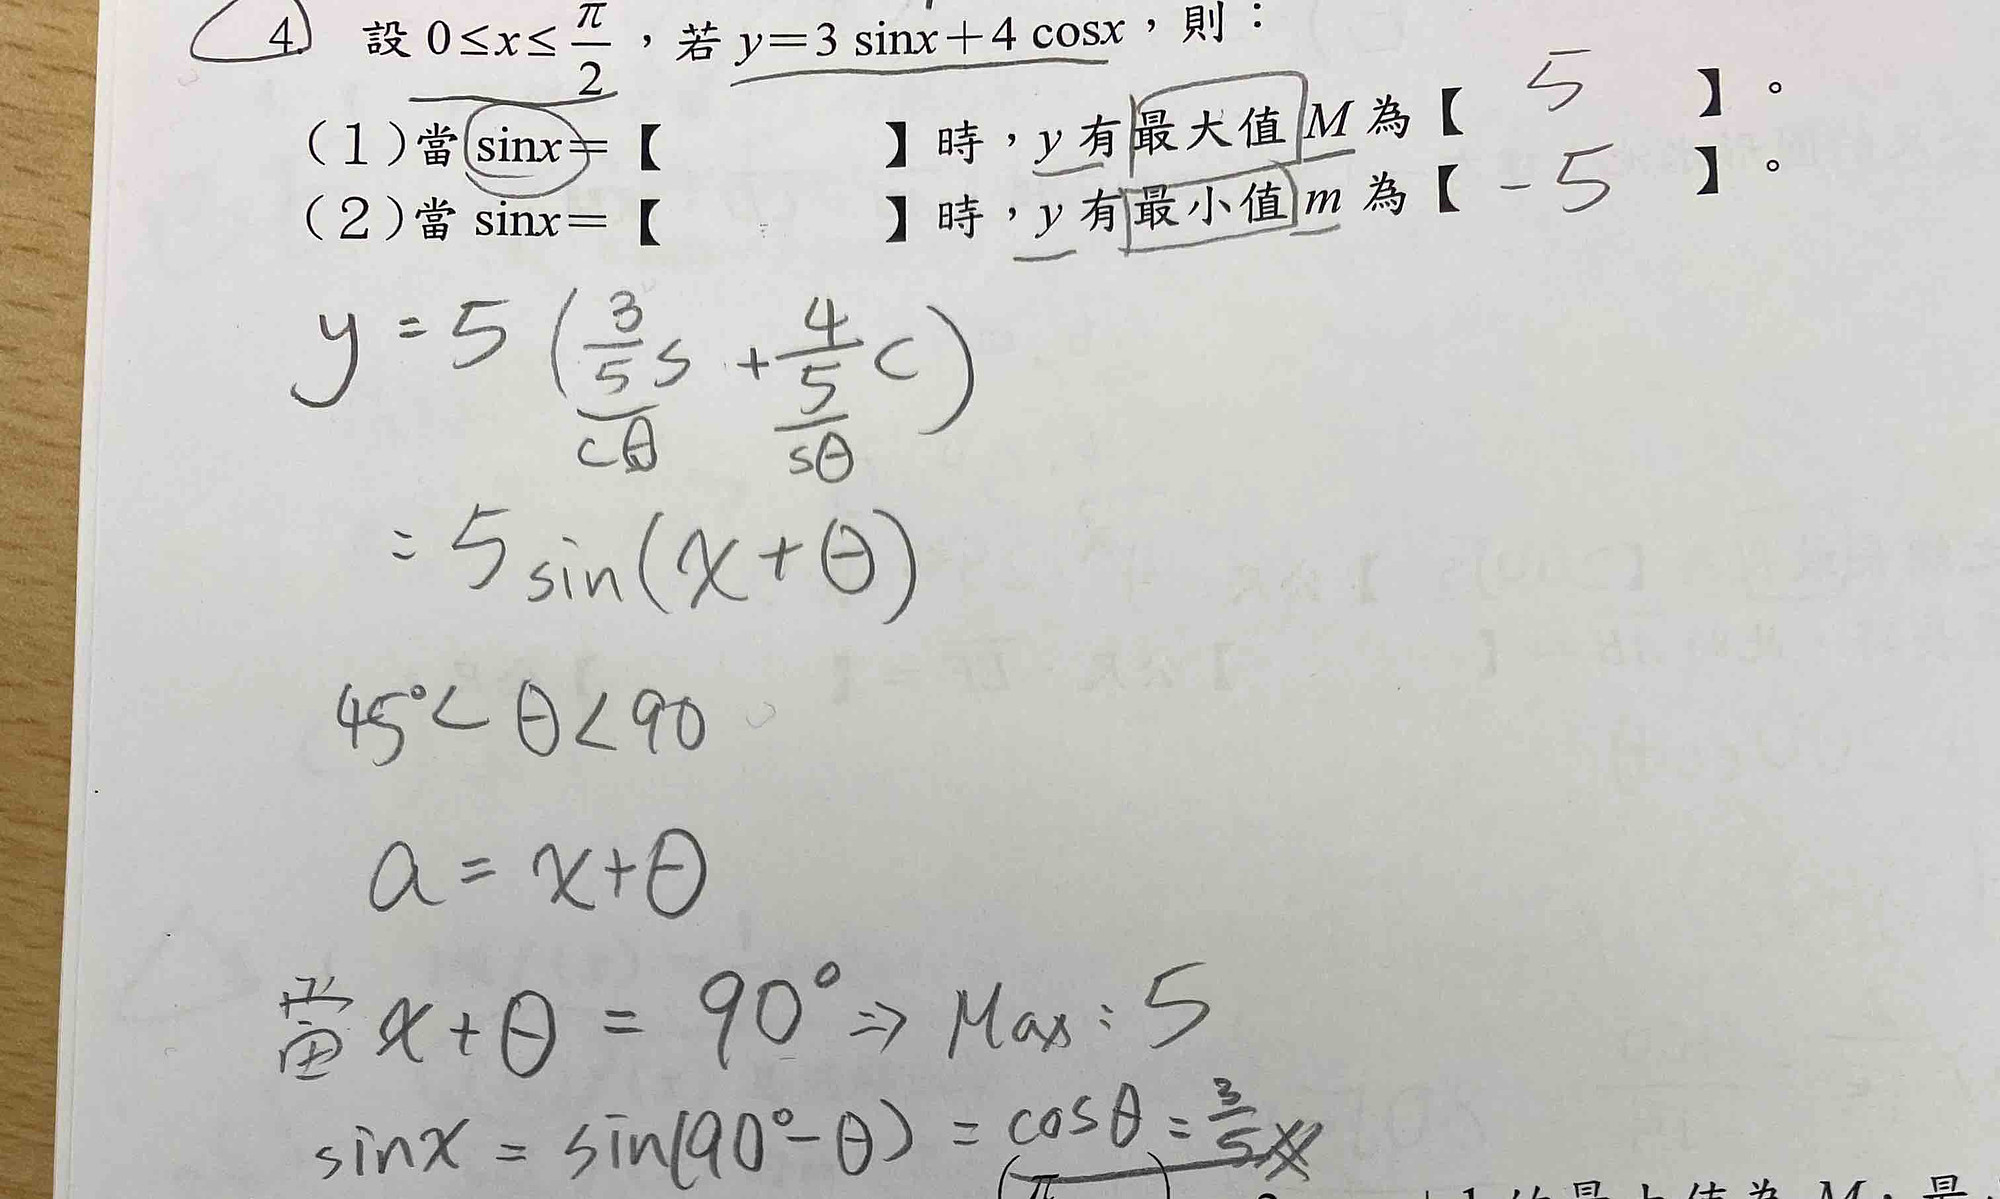 4. 設 0≤x≤π/2，若 y=3 sinx+4 cosx，則：
(1)當 sinx=【 】時，y 有最大值 M 為【 5 】。
(2)當 sinx=【 】時，y 有最小值 m 為【 -5 】。
y = 5 (3/5 s + 4/5 c)
cθ sθ
= 5 sin(x+θ)
45° < θ < 90
a = x+θ
當 x+θ = 90° ⇒ Max : 5
sinx = sin(90°-θ) = cosθ = 3/5